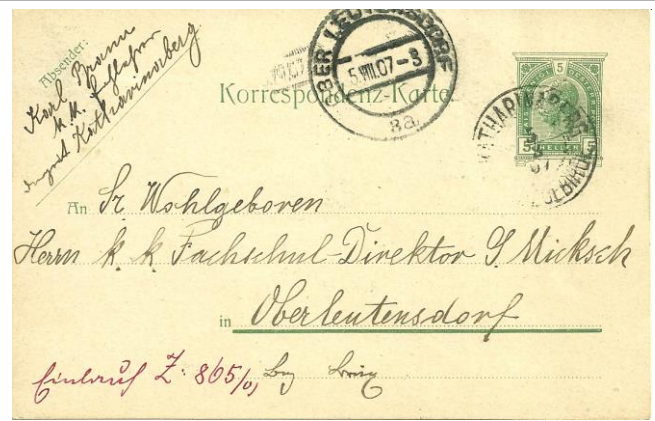 Absender:
Karl Braun
k.k.
Katharinaberg
Korrespondenz-Karte
OBER LEUTENSDORF
5.VIII.07-3
8a
5
5 HELLER 5
KATHARINABERG
07
An Sr Wohlgeboren
Herrn k. k. Fachschul-Direktor G Micksch
in Oberleutensdorf
Einlauf Z: 865/0,